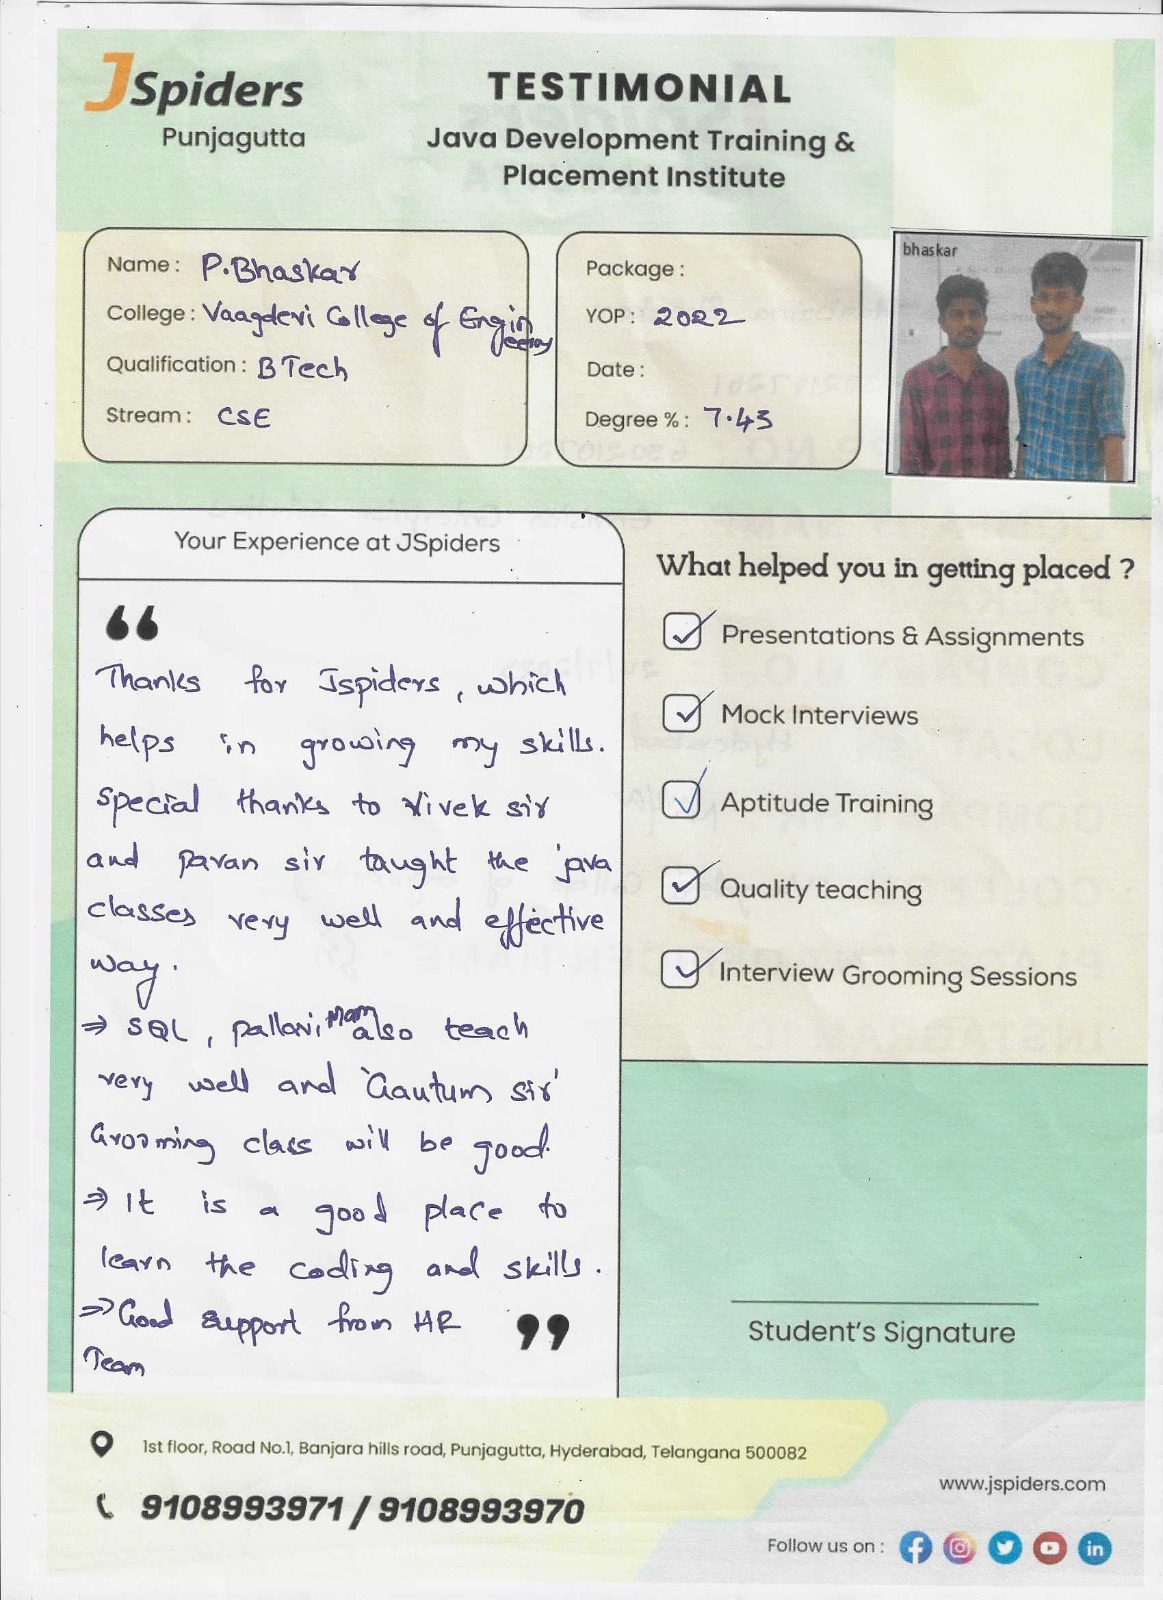 JSpiders
Punjagutta
TESTIMONIAL
Java Development Training &
Placement Institute
Name : P.Bhaskar
College : Vaagdevi College of Engin
eering
Qualification : B Tech
Stream : CSE
Package :
YOP : 2022
Date :
Degree % : 7.43
bhaskar
Your Experience at JSpiders
“
Thanks for Jspiders, which
helps in growing my skills.
special thanks to Vivek sir
and pavan sir taught the java
classes very well and effective
way.
⇒ SQL, pallavi Mam also teach
very well and 'Gautum sir'
Grooming class will be good.
⇒ It is a good place to
learn the coding and skills.
⇒ Good support from HR
Team
”
What helped you in getting placed ?
Presentations & Assignments
Mock Interviews
Aptitude Training
Quality teaching
Interview Grooming Sessions
Student's Signature
1st floor, Road No.1, Banjara hills road, Punjagutta, Hyderabad, Telangana 500082
9108993971 / 9108993970
www.jspiders.com
Follow us on :